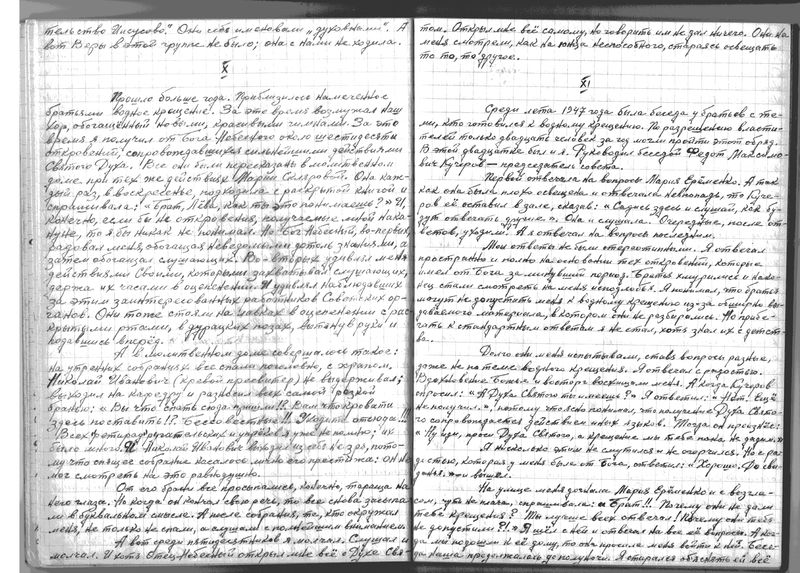 тельство Иисусово." Они себя именовали "духовными". А
вот Веры в этой группе не было; она с нами не ходила.
X
Прошло больше года. Приблизилось намеченное
братьями водное крещение. За это время возмужал наш
хор, обогащённый новыми, красивыми гимнами. За это
время я получил от Бога Небесного около шестидесяти
откровений, сопровождавшихся сильнейшими действиями
Святого Духа. Все они были пересказаны в молитвенном
доме при тех же действиях Марии Скляровой. Она каж-
дый раз, в воскресенье, подходила с раскрытой книгой и
спрашивала: "Брат, Лёва, как ты это понимаешь?" И,
конечно, если бы не откровения, получаемые мной нака-
нуне, то я бы никак не понимал. Но Бог Небесный, во-первых
радовал меня, обогащая неведомыми дотоль знаниями, а
затем обогащал слушающих. Во-вторых удивлял меня
действиями Своими, которыми захватывал слушающих,
держа их часами в оцепенении. И удивлял наблюдавших
за этим заинтересованных работников Советских ор-
ганов. Они тоже стояли на лавках в оцепенении с рас-
крытыми ртами, в дурацких позах, вытянув руки и
подавшись вперёд.
А в молитвенном доме совершалось такое:
на утренних собраниях все спали поголовно, с храпом.
Николай Иванович (хревой пресвитер) не выдерживал;
выходил на кафедру и разносил всех самой резкой
бранью: "Вы что! Спать сюда пришли!? Вам что кровати
здесь поставить!? Бессовестные!! Уходите отсюда!!!
Всех эпитаф ругательских и упрёков я уже не помню; их
было много. Николай Иванович выходил из себя не зря, пото-
му что спящее собрание касалось лично его престижа: он не
мог смотреть на это равнодушно.
От его брани все просыпались, конечно, тараща на
него глаза. Но когда он кончал свою речь, то все снова засыпа-
ли в буквальном смысле. А после собрания, те, кто окружал
меня, не только не спали, а слушали с полнейшим вниманием.
А вот среди пятидесятников я молчал. Слушал и
молчал. И хотя Отец Небесный открыл мне всё о Духе Свя-
том. Открыл мне всё самому, но говорить им не дал ничего. Они на
меня смотрели, как на юнца неспособного, стараясь освещать
то то, то другое.
XI
Среди лета 1947 года была беседа у братьев с те-
ми, кто готовился к водному крещению. По разрешению власти-
телей только двадцать человек за год могли пройти этот обряд.
В этой двадцатке был и я. Руководил беседой Федот Максимо-
вич Кучеров — председатель совета.
Первой отвечала на вопросы Мария Ерёменко. А так
как она была плохо освещена и отвечала невпопад, то Куче-
ров её оставил в зале, сказав: "Садись здесь и слушай, как бу-
дут отвечать другие". Она и слушала. Очередные, после от-
ветов, уходили. А я отвечал на вопросы последним.
Мои ответы не были стереотипными. Я отвечал
пространно и полно на основании тех откровений, которые
имел от Бога за минувший период. Братья хмурились и нако-
нец стали смотреть на меня исподлобья. Я понимал, что братья
могут не допустить меня к водному крещению из-за обширно вы-
даваемого материала, в котором они не разбирались. Но прибе-
гать к стандартным ответам я не стал, хоть знал их с детст-
ва.
Долго они меня испытывали, ставя вопросы разные,
даже не по теме водного крещения. Я отвечал с радостью.
Вдохновение Божье и восторг восхищали меня. А когда Кучеров
спросил: "А Духа Святого ты имеешь?" Я ответил: "Нет! Ещё
не получил", потому что ясно понимал, что получение Духа Свято-
го сопровождается действием иных языков. Тогда он произнёс:
"Ну иди, проси Духа Святого, а крещение мы тебе пока не дадим."
Я нисколько этим не смутился и не огорчился. Но с ра-
достью, которая у меня была от Бога, ответил: "Хорошо. До сви-
дания." и вышел.
На улице меня догнала Мария Ерёменко и с возгла-
сом, чуть не плача, спрашивала: "Брат!!! Почему они не дали
тебе крещения? Ты лучше всех отвечал! Почему они тебя
не допустили?!" Я шёл с ней и отвечал на все её вопросы. А ког-
да мы подошли к её дому, то она просила меня войти к ней. Бесе-
да наша продолжалась до полуночи. Я старался объяснить ей всё